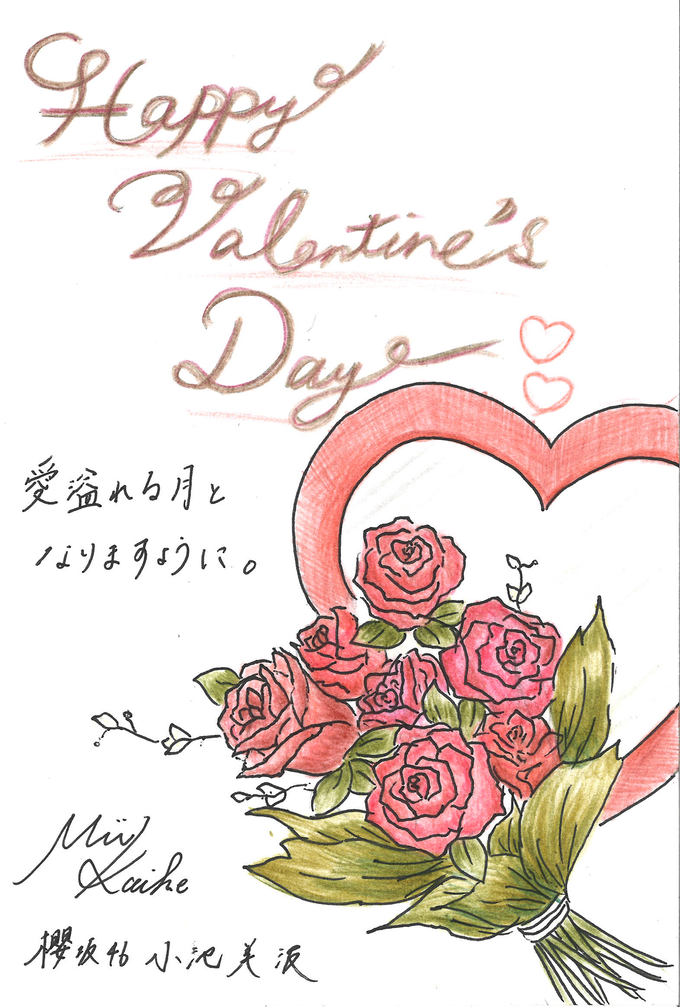 Happy
Valentine's
Day
愛溢れる月と
なりますように。
Mii
Koike
櫻坂46 小池美波